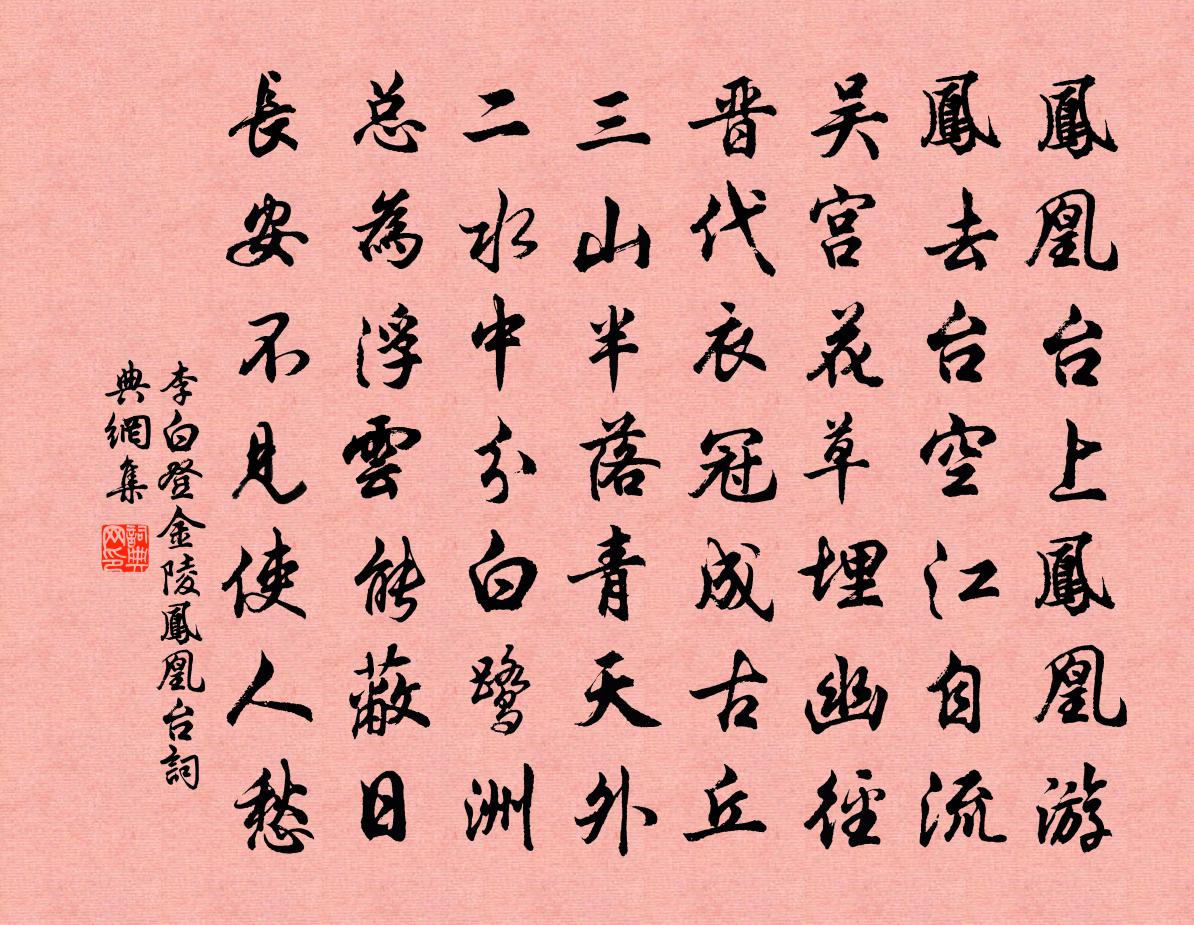 鳳凰台上鳳凰游
鳳去台空江自流
吴宫花草埋幽徑
晋代衣冠成古丘
三山半落青天外
二水中分白鷺洲
总為浮雲能蔽日
長安不見使人愁
李白登金陵鳳凰台詞
典網集
詞典网印